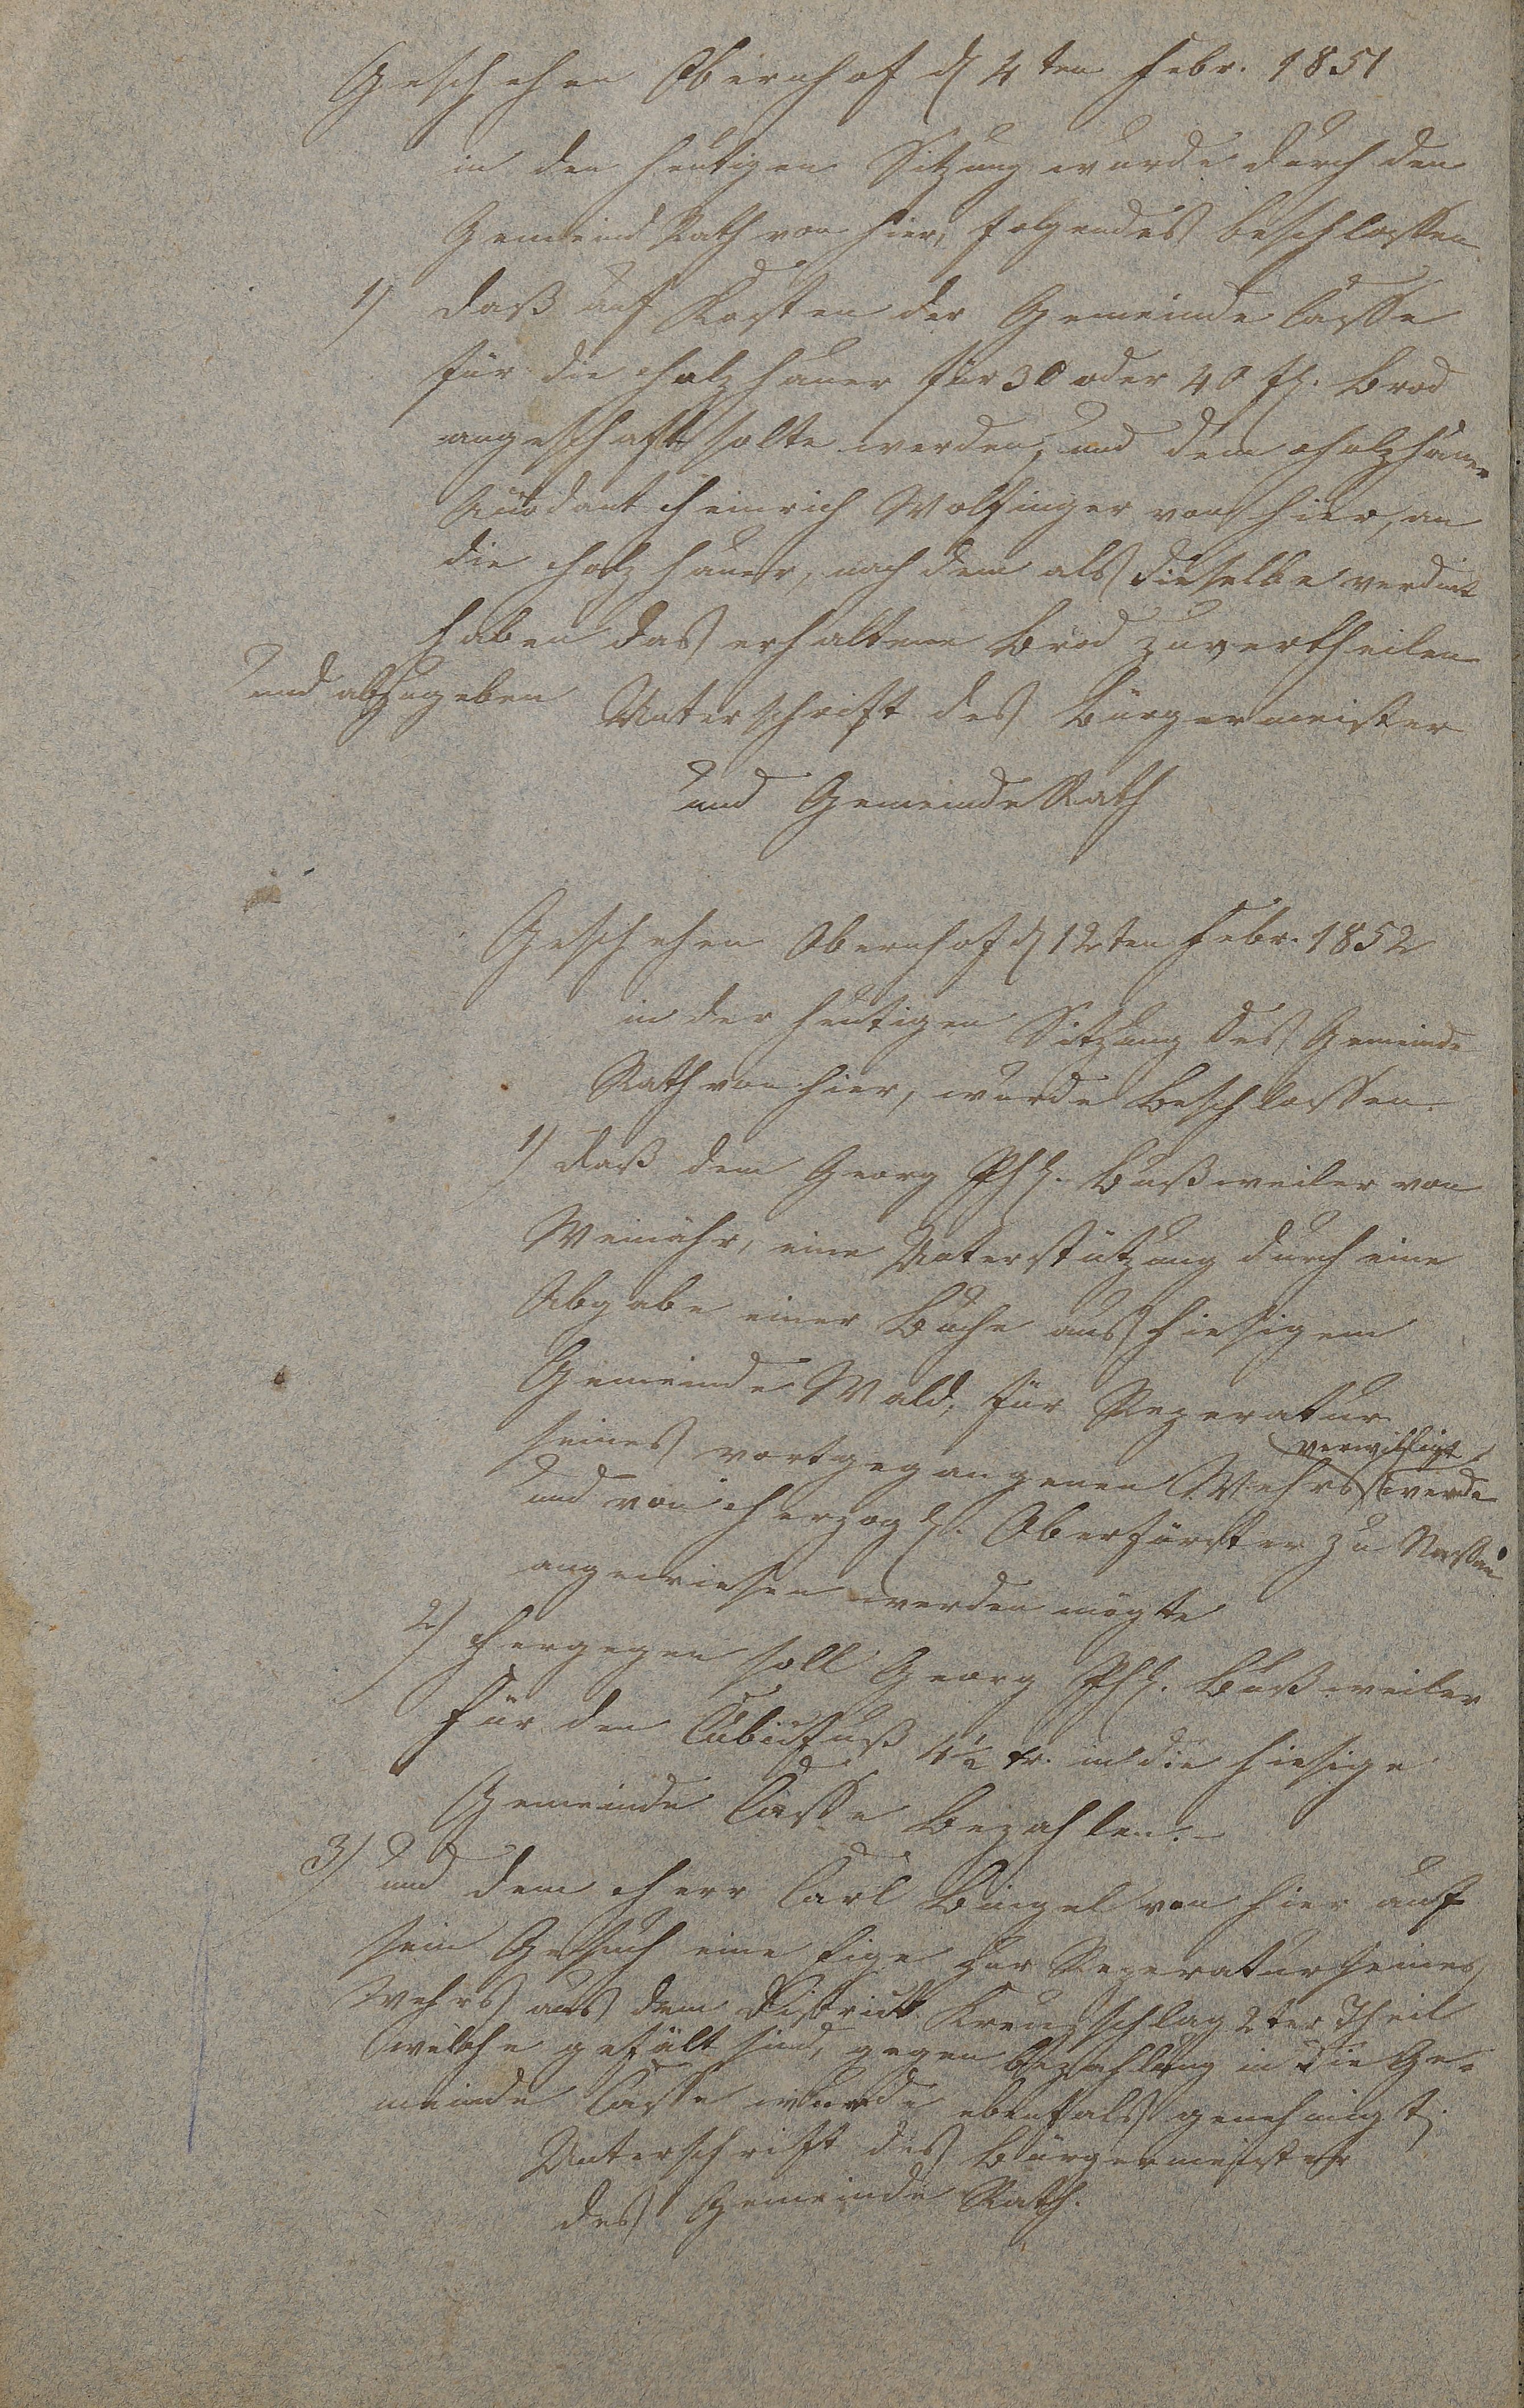 Geschehen Obernhof d 4ten Febr. 1851
in der heutigen Sitzung wurde durch den
Gemeind Rath von hier, folgendes beschlossen
1) daß auf Kosten der Gemeinde Casse
für die Holzhauer für 30 oder 40 fl. Brod
angeschaft solte werden, und dem Holzhauer
Heinrich Wolfinger von hier, an
die Holzhauer, nach dem als dieselbe verdint
haben das erhaltene Brod zuvertheilen
und abzugeben
Unterschrift des Bürgermeister
und Gemeinde Rath
Geschehen Obernhof d 12ten Febr. 1852
in der heutigen Sitzung des Gemeinde
Rath von hier, wurde beschlossen.
1) daß dem Georg Phl. Bußweiler von
Weinähr, eine Unterstützung durch eine
Abgabe einer Buche aus hiesigem
Gemeinde Wald, für Reperatur
seines vortgegangenen Wehrs verwilligt werde
und von Herzogl. Oberförster zu Nassau
angewiesen werden mögte
2) Hergegen soll Georg Phl. Bußweiler
für den Cubicfuß 4½ kr. in die hiesige
Gemeinde Casse bezahlen.-
3) und dem Herr Carl Büngel von hier auf
sein Gesuch eine zur Reperatur seines
Wehrs aus dem District Kreuzschlag 2ter Theil
welche gefält sind, gegen bezahlung in die Ge-
meinde Casse wurde ebenfals genehmigt.
Unterschrift des Bürgermeister
des Gemeinde Rath.